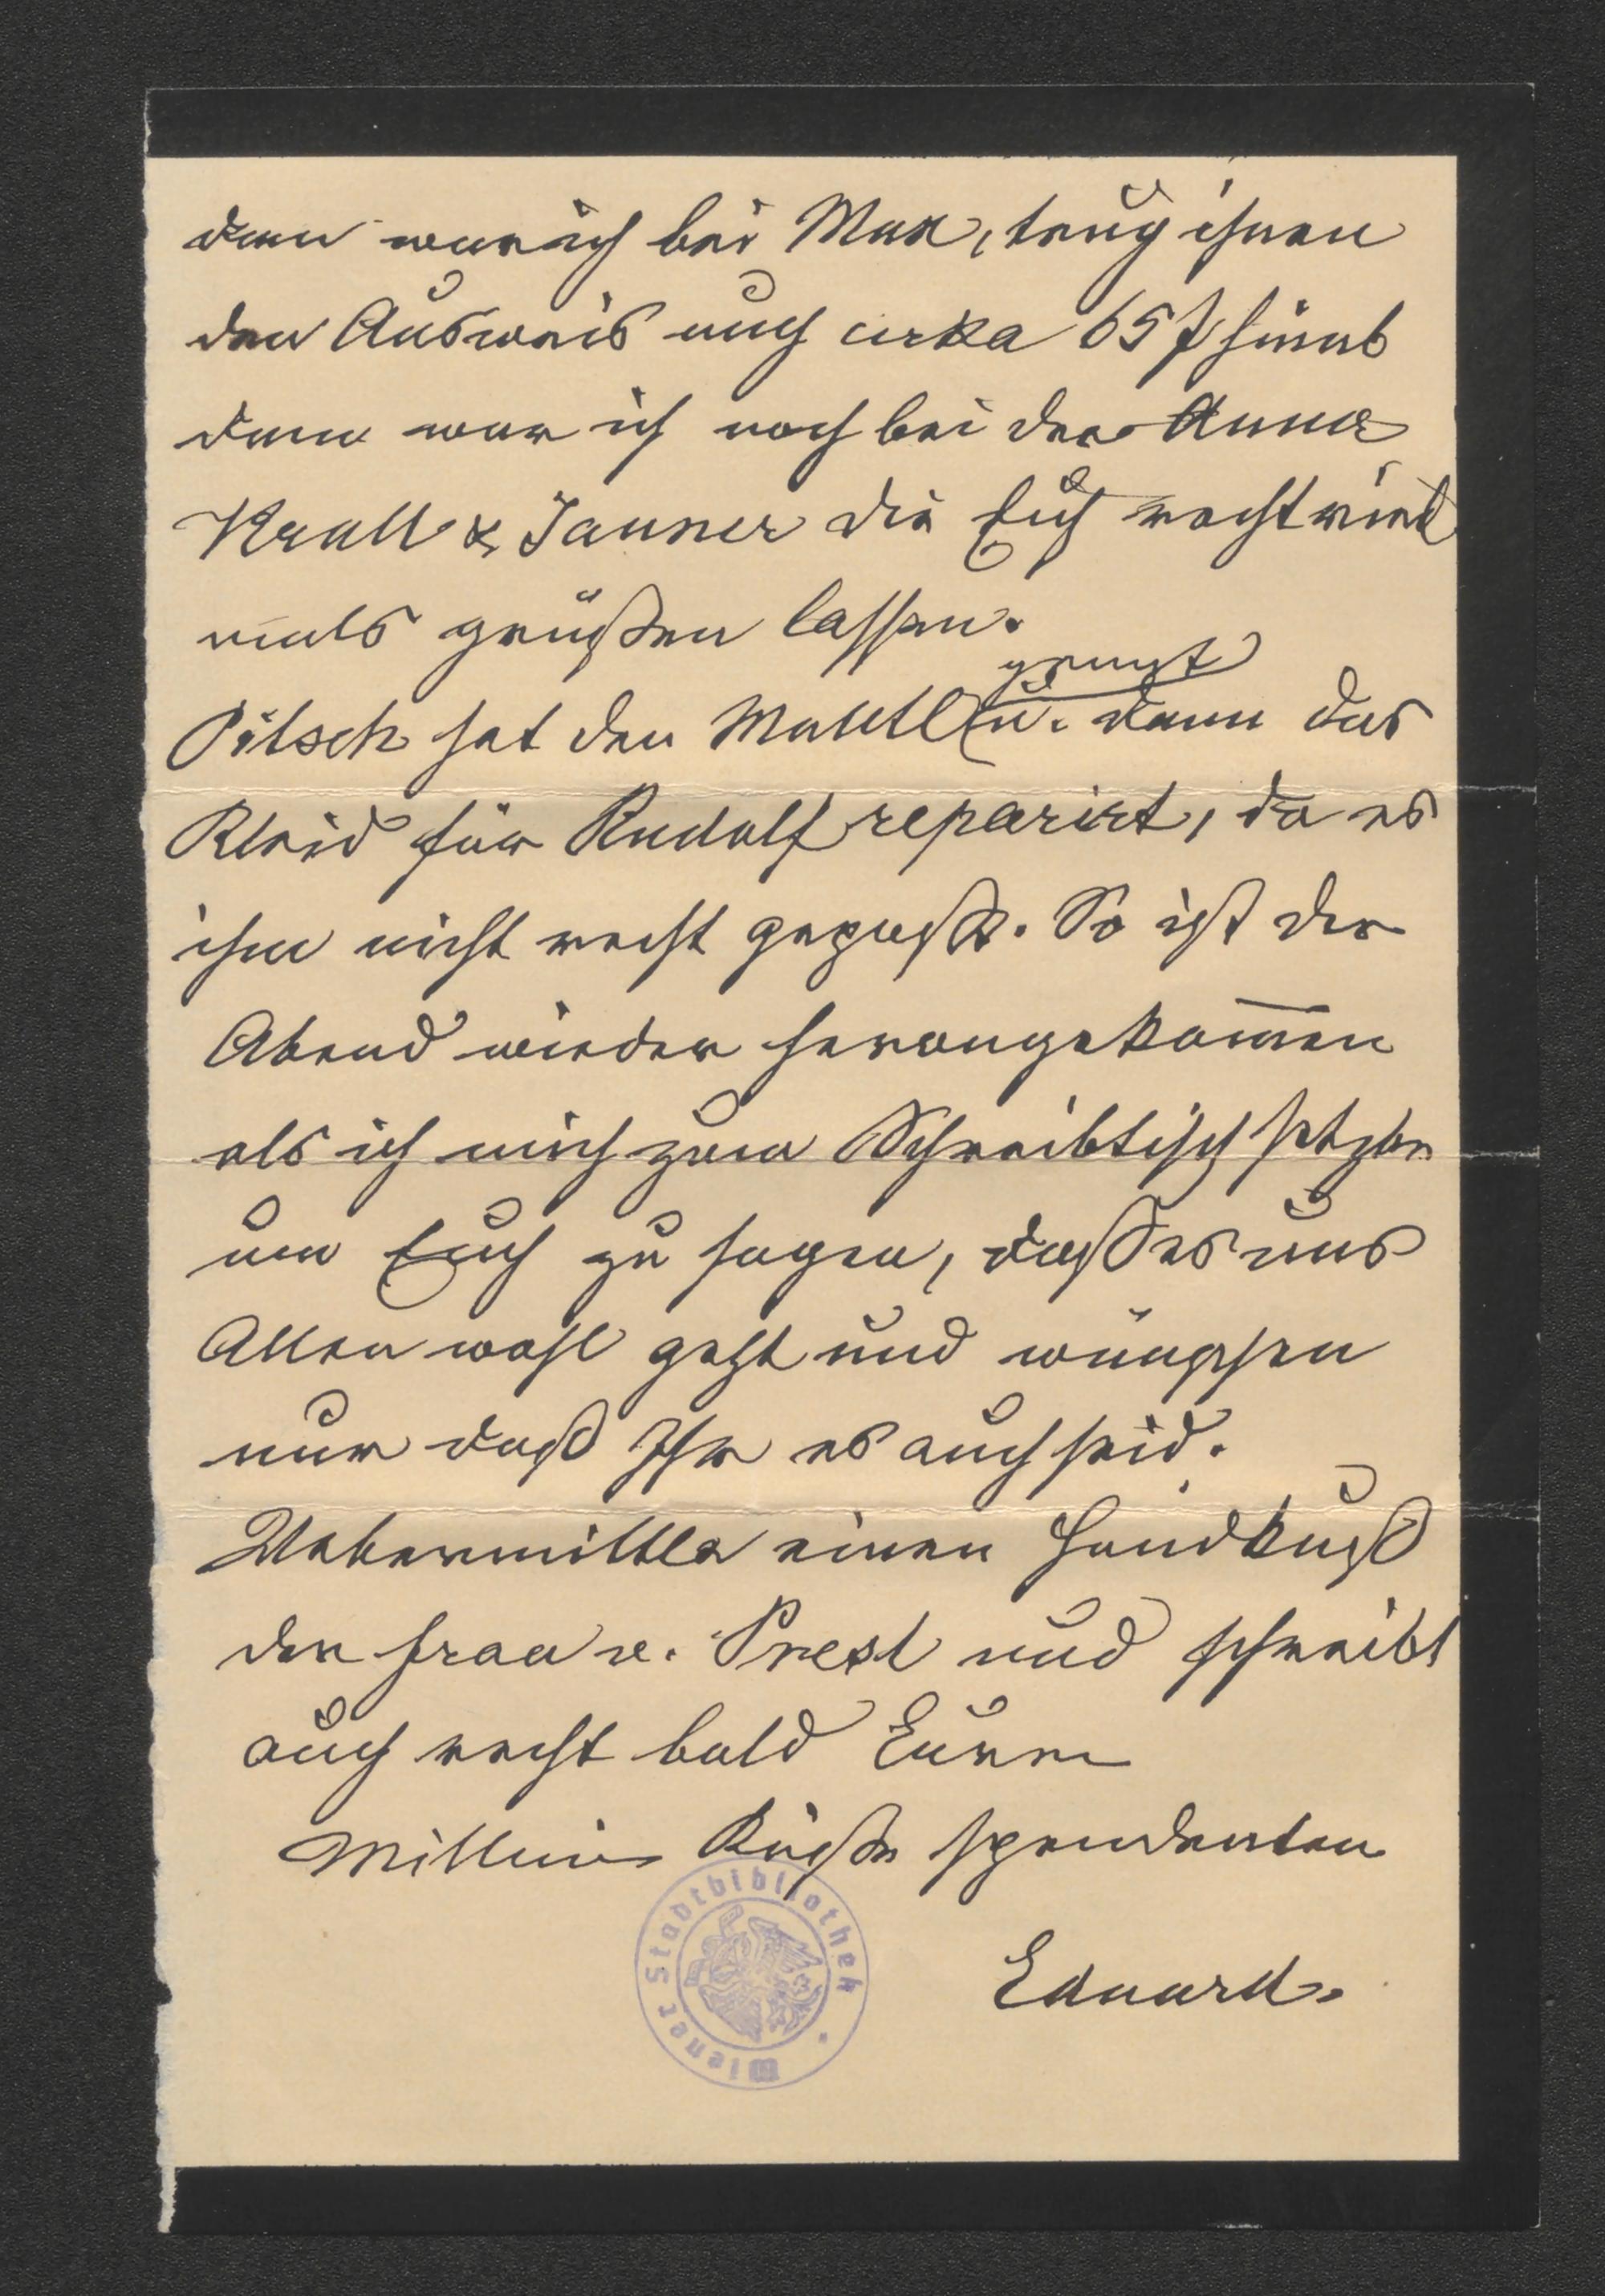 dann war ich bei Max, trug ihnen
den Ausweis nach cirka 65 f hinab
dann war ich noch bei der Anna
Krall & Jauner die Euch recht viel
mals grüßen lassen.
gemacht
Pitsch hat den Mantel u. dann das
Kleid für Rudolf reparirt, da es
ihm nicht recht gepaßt. So ist der
Abend wieder herangekom̅en
als ich mich zum Schreibtisch setzte
um Euch zu sagen, daß es uns
Allen wohl geht und wünschen
nur daß Ihr es auch seid.
Uebermittle einen Handkuß
der Frau v. und schreibt
auch recht bald Euren
Million Küße spendenden
Eduard.
Wiener Stadtbibliothek